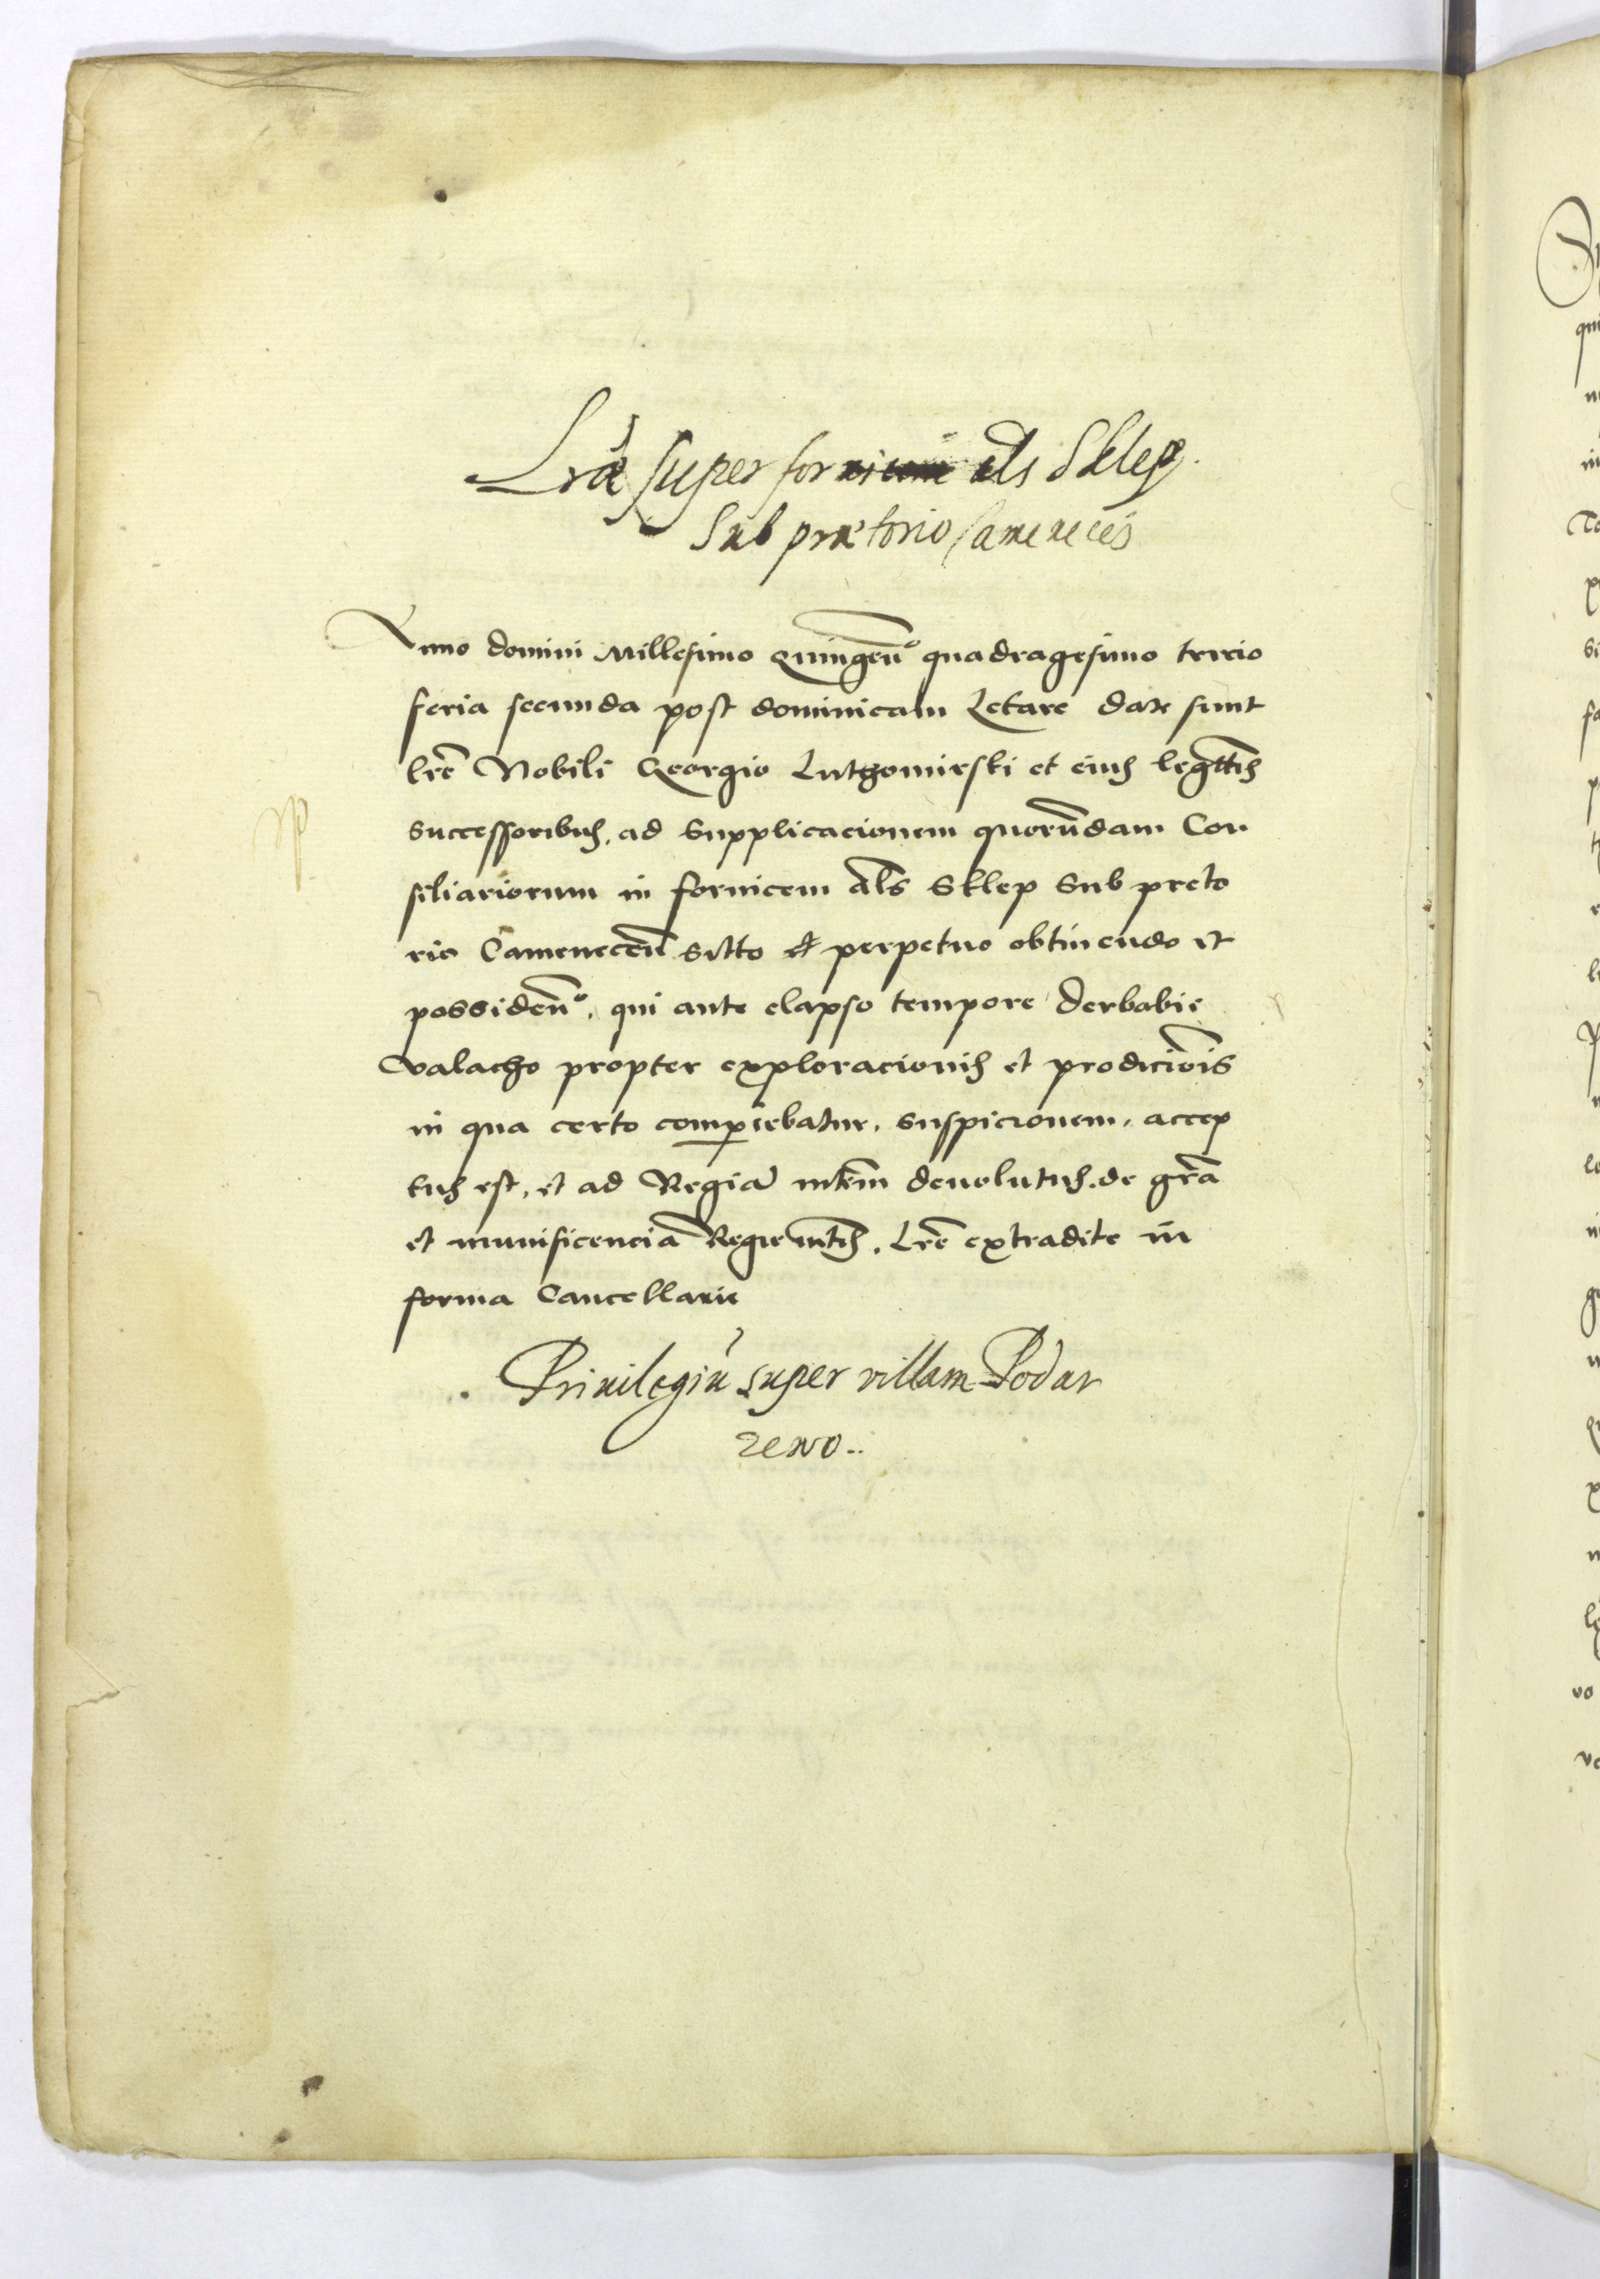 Lrae super fornicem als Sklep.
Sub praetorio Camenecen
Anno domini Millesimo Quingen⁰ quadragesimo tercio
feria secunda post dominicam Letare date sunt
lre Nobili Georgio Lutzomirski et eius legttis
successoribus, ad supplicacionem quorundam Con
siliariorum in fornicem als Sklep sub preto
rio Camenecen sitto perpetuo obtinendo et
possiden⁰, qui ante elapso tempore Derbabie
valacho propter exploracionis et prodicionis
in qua certo comperiebatur, suspicionem, accep
tus est, et ad Regia mtem deuolutus. de gra
et munificencia Regie mtis. Lre extradite in
forma Cancellarie
Priuilegiu super villam Podar
zewo..